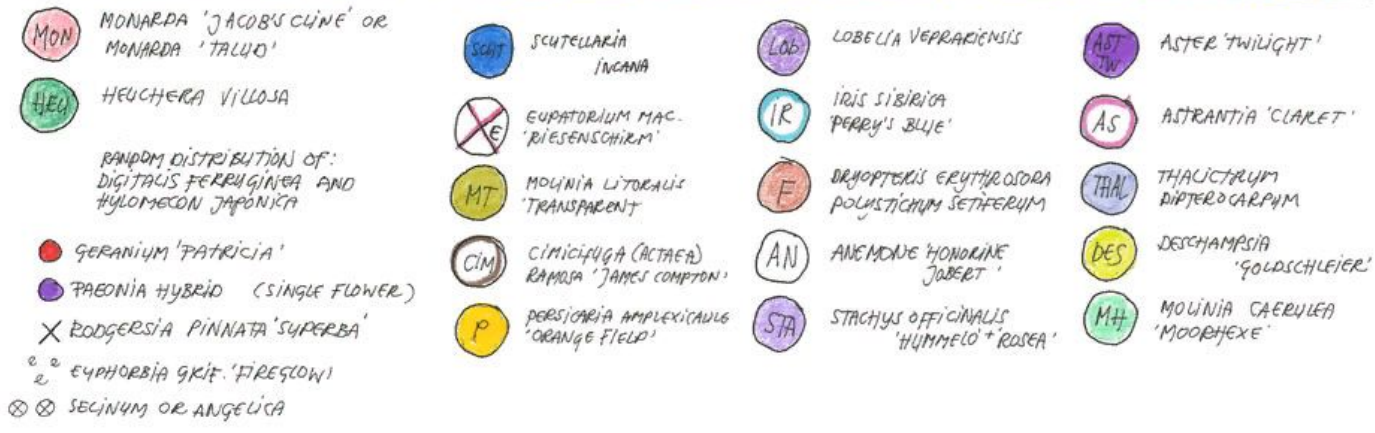 MON MONARDA 'JACOB'S CLINE' OR
MONARDA 'TALUD'
HEU HEUCHERA VILLOSA
RANDOM DISTRIBUTION OF:
DIGITALIS FERRUGINEA AND
HYLOMECON JAPONICA
GERANIUM 'PATRICIA'
PAEONIA HYBRID (SINGLE FLOWER)
RODGERSIA PINNATA 'SUPERBA'
e e e EUPHORBIA GRIF. 'FIREGLOW'
SELINUM OR ANGELICA
SCUT SCUTELLARIA
INCANA
E EUPATORIUM MAC.
'RIESENSCHIRM'
MT MOLINIA LITORALIS
'TRANSPARENT
CIM CIMICIFUGA (ACTAEA)
RAMOSA 'JAMES COMPTON'
P PERSICARIA AMPLEXICAULE
'ORANGE FIELD'
LOB LOBELIA VEPRARIENSIS
IR IRIS SIBIRICA
'PERRY'S BLUE'
F DRYOPTERIS ERYTHROSORA
POLYSTICHUM SETIFERUM
AN ANEMONE 'HONORINE
JOBERT'
STA STACHYS OFFICINALIS
'HUMMELO' + 'ROSEA'
AST TW ASTER 'TWILIGHT'
AS ASTRANTIA 'CLARET'
THAL THALICTRUM
DIPTEROCARPUM
DES DESCHAMPSIA
'GOLDSCHLEIER'
MH MOLINIA CAERULEA
'MOORHEXE'